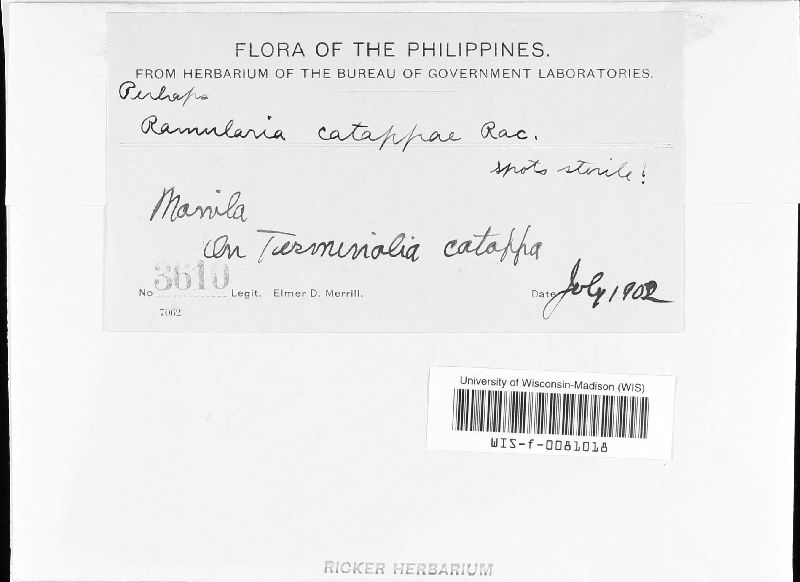 FLORA OF THE PHILIPPINES.
FROM HERBARIUM OF THE BUREAU OF GOVERNMENT LABORATORIES.
Perhaps
Ramularia catappae Rac.
spots sterile!
Manila
On Terminalia catappa
No. 3610 Legit. Elmer D. Merrill. Date July 1902
7062
University of Wisconsin-Madison (WIS)
WIS-f-0081018
RICKER HERBARIUM